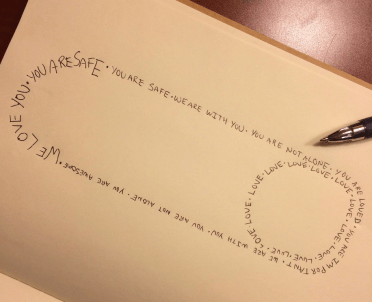 WE LOVE YOU · YOU ARE SAFE · YOU ARE SAFE · WE ARE WITH YOU · YOU ARE NOT ALONE · YOU ARE LOVED · YOU ARE IMPORTANT · WE ARE WITH YOU · YOU ARE NOT ALONE · YOU ARE AWESOME ·
LOVE · LOVE · LOVE · LOVE · LOVE · LOVE · LOVE · LOVE · LOVE · LOVE · LOVE LOVE